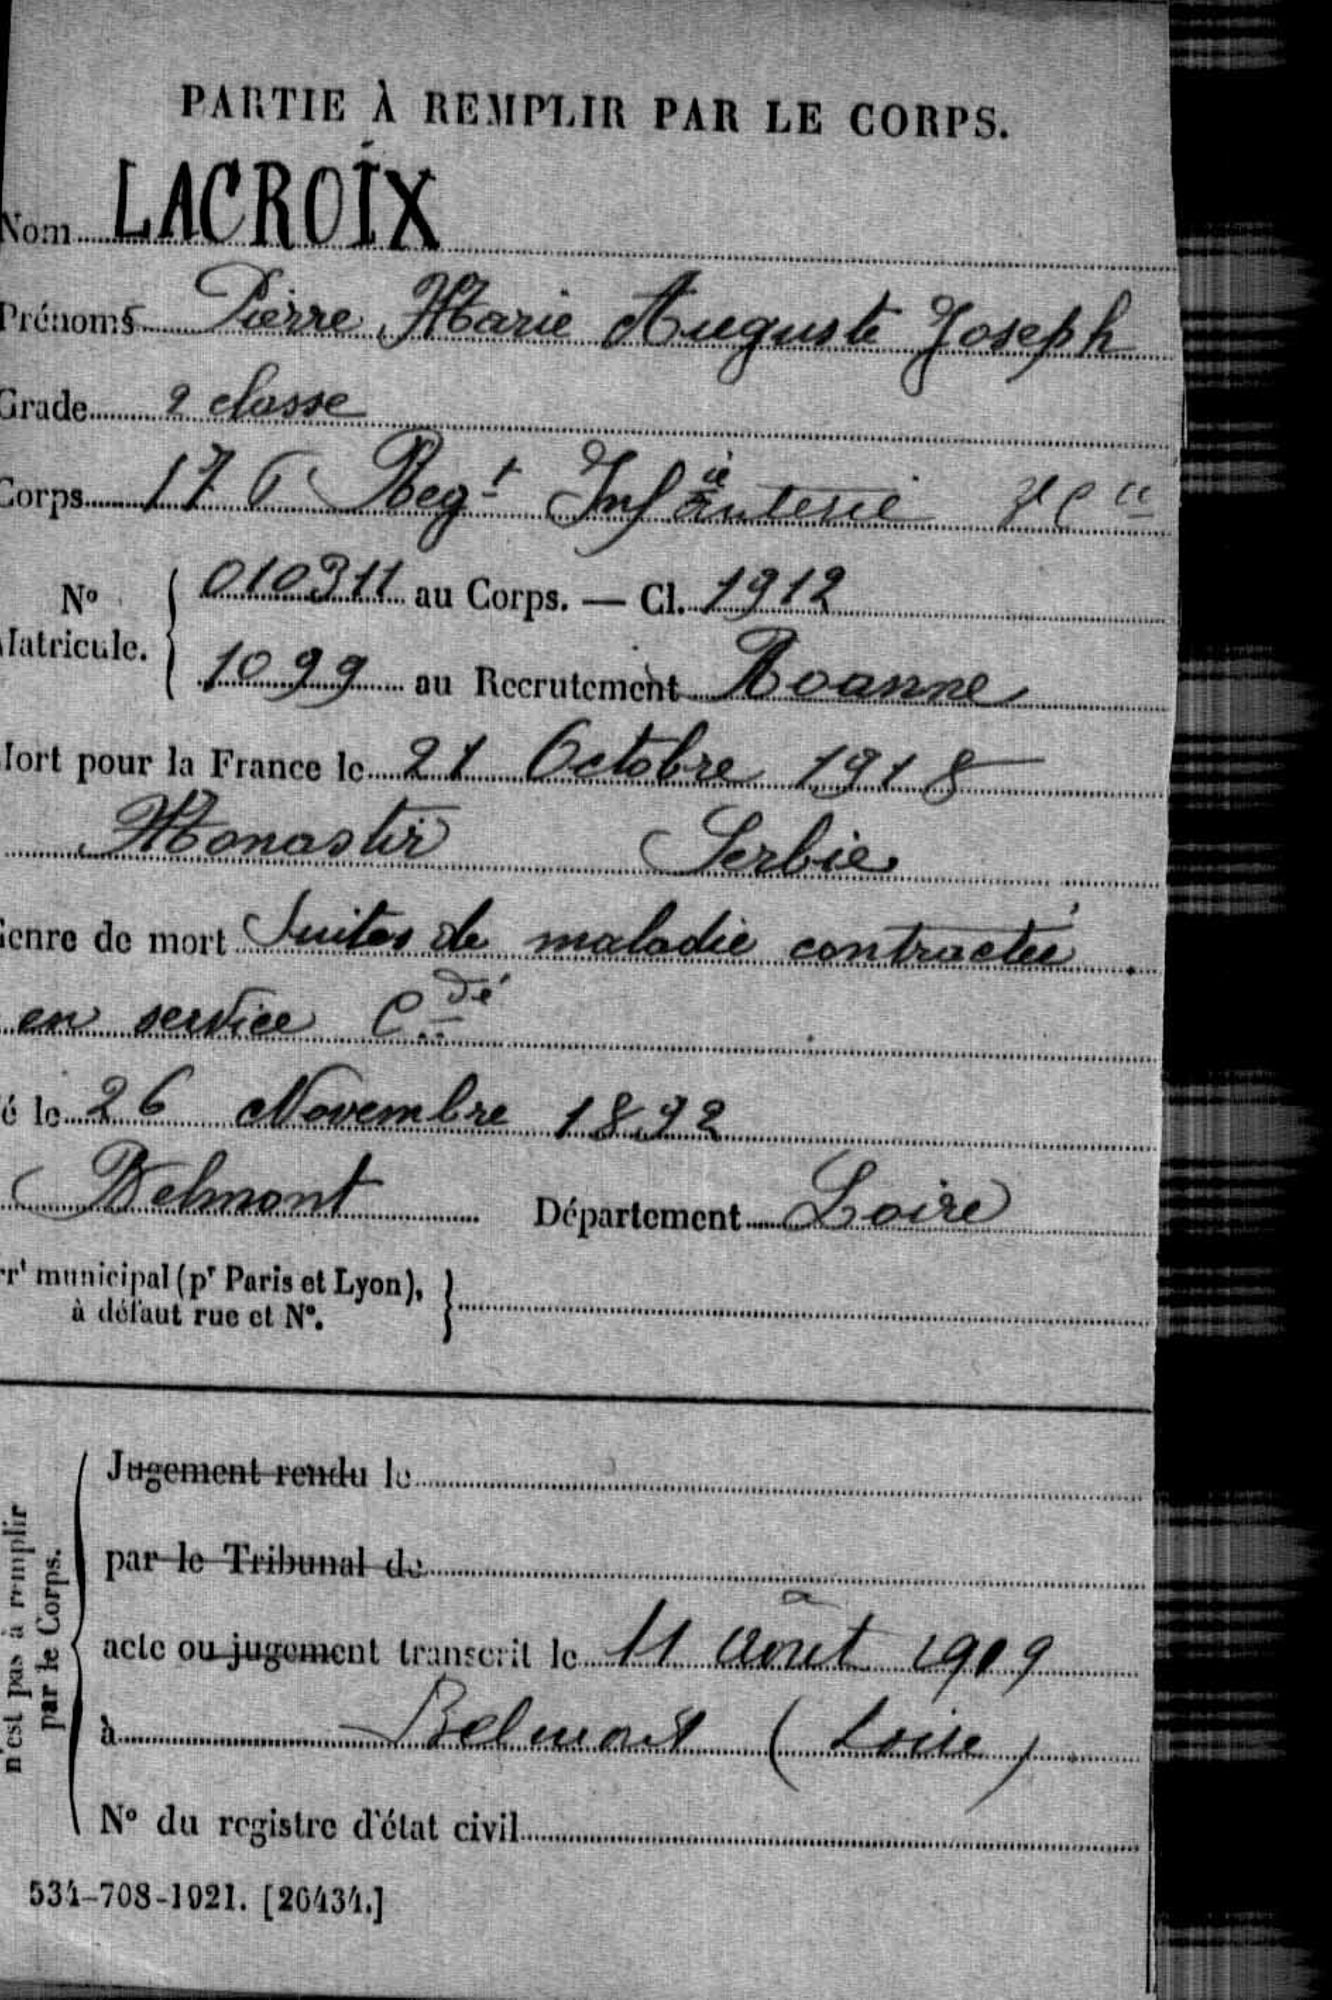 PARTIE À REMPLIR PAR LE CORPS.
Nom LACROIX
Prénoms Pierre Marie Auguste Joseph
Grade 2 classe
Corps 176 Regt Infanterie Cie
No Matricule. 010311 au Corps. — Cl. 1912
1099 au Recrutement Roanne
Mort pour la France le 21 Octobre 1918
Monastir Serbie
Genre de mort Suites de maladie contractée
en service Cdé
é le 26 Novembre 1892
Belmont Département Loire
rrt municipal (pr Paris et Lyon),
à défaut rue et No.
n'est pas à remplir
par le Corps.
Jugement rendu le
par le Tribunal de
acte ou jugement transcrit le 11 Août 1919
à Belmont (Loire)
No du registre d'état civil
534-708-1921. [26434.]